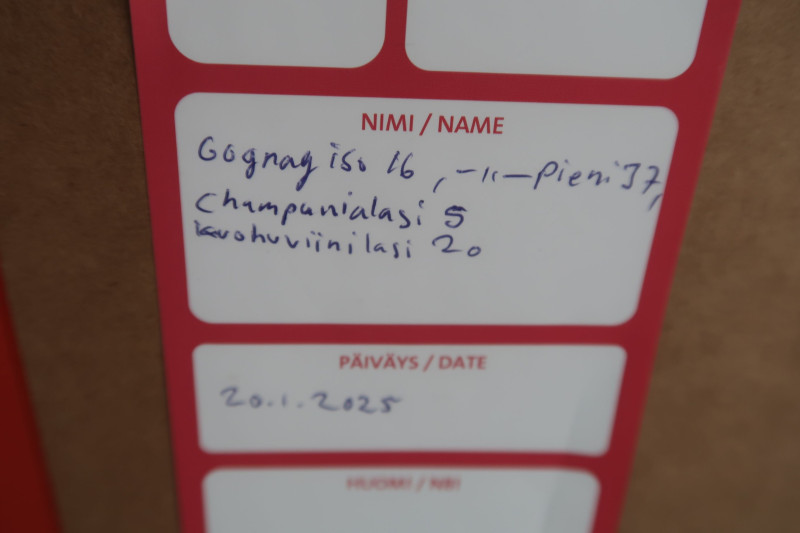 NIMI / NAME
Gognag iso 16, -"- Pieni 37,
Champanialasi 5
kuohuviinilasi 20
PÄIVÄYS / DATE
20.1.2025
HUOMI / NB!